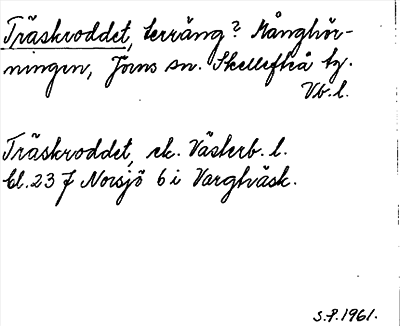 Träskroddet, terräng? Månghör-
ningen, Jörns sn. Skellefteå tg.
Vb. l.
Träskroddet, ek. Västerb. l.
bl. 23 J Norsjö 6 i Vargträsk.
S.P. 1961.